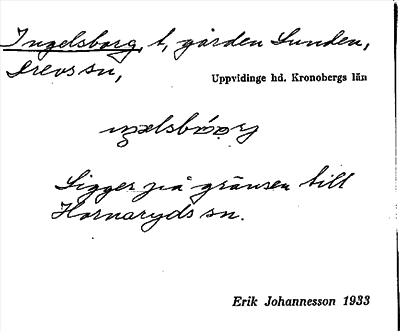 Ingelsborg, t, gården Lunden,
Drevs sn,
Uppvidinge hd. Kronobergs län
Ligger på gränsen till
Hornaryds sn.
Erik Johannesson 1933